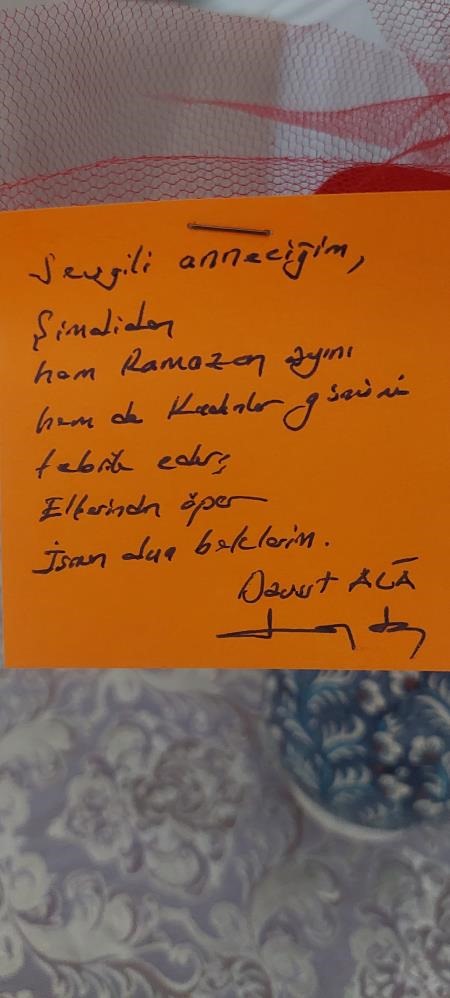 Sevgili anneciğim,
Şimdiden
hem Ramazan ayını
hem de Kadınlar gününü
tebrik eder;
Ellerinden öper
dua beklerim.
Davut ALÂ